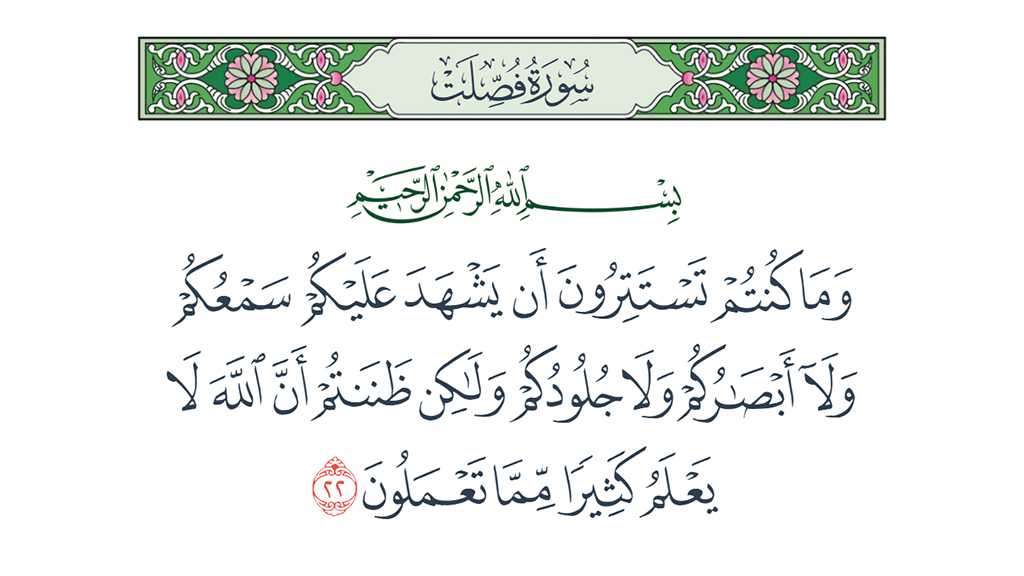 سُورَةُ فُصِّلَتْ
بِسْمِ ٱللَّهِ ٱلرَّحْمَٰنِ ٱلرَّحِيمِ
وَمَا كُنتُمْ تَسْتَتِرُونَ أَن يَشْهَدَ عَلَيْكُمْ سَمْعُكُمْ
وَلَآ أَبْصَٰرُكُمْ وَلَا جُلُودُكُمْ وَلَٰكِن ظَنَنتُمْ أَنَّ ٱللَّهَ لَا
يَعْلَمُ كَثِيرًا مِّمَّا تَعْمَلُونَ ٢٢